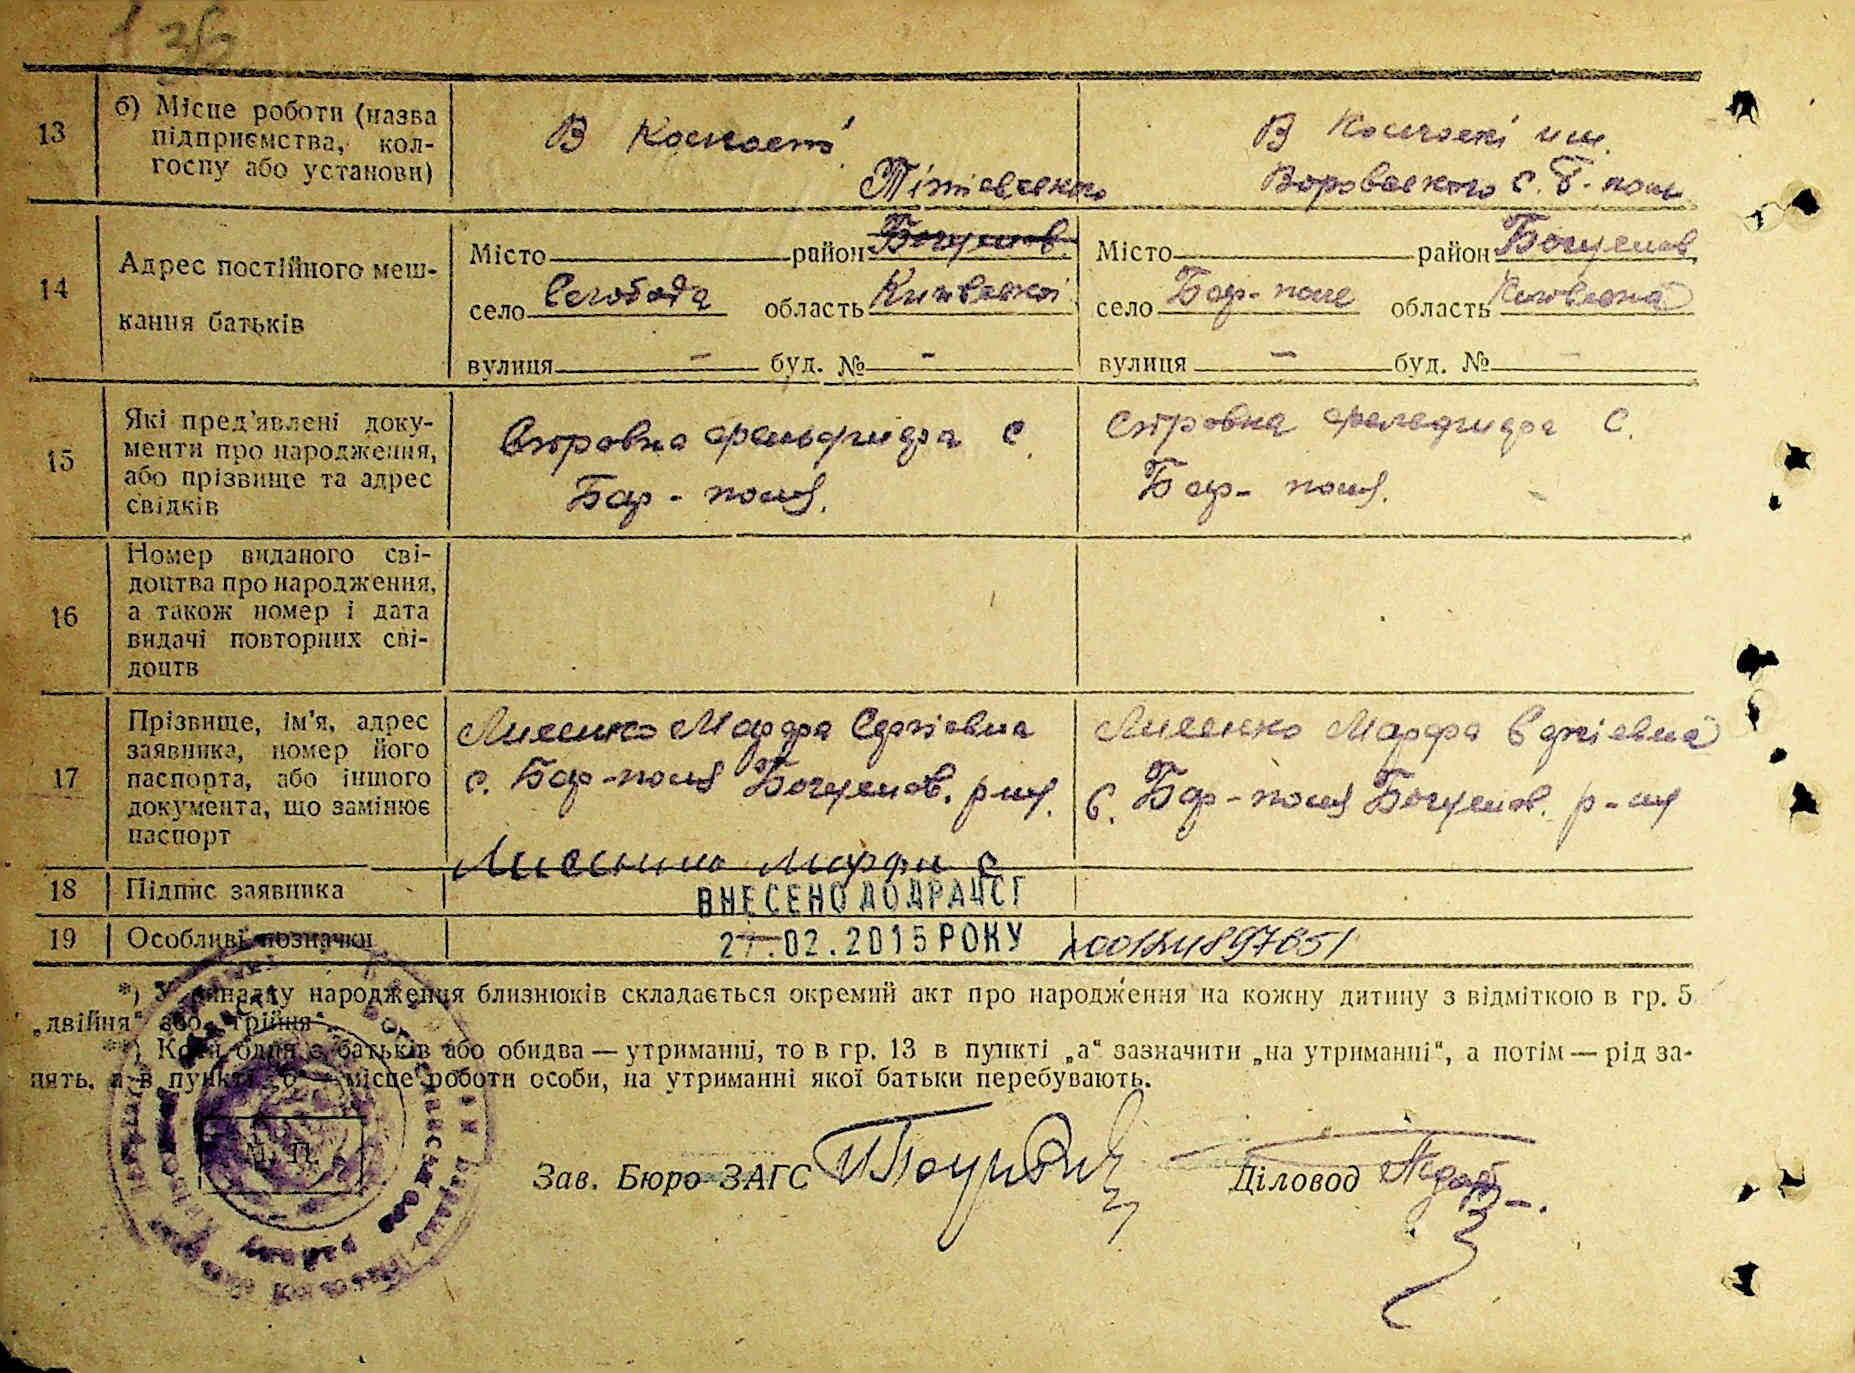 13
б) Місце роботи (назва
підприємства, кол-
госпу або установи)
В Колгоспі
В Колгоспі им.
Воровского с. Б. поле
14
Адрес постійного меш-
кання батьків
Місто район Богуслав.
село Слобода область Київської
вулиця - буд. № -
Місто район Богуслав
село Бар-поле область Київська
вулиця - буд. №
15
Які пред'явлені доку-
менти про народження,
або прізвище та адрес
свідків
с.
Бар-поля.
с.
Бар-поля.
16
Номер виданого сві-
доцтва про народження,
а також номер і дата
видачі повторних сві-
доцтв
17
Прізвище, ім'я, адрес
заявника, номер його
паспорта, або іншого
документа, що замінює
паспорт
Лисенко Марфа
с. Бар-поля Богуслав. р-ну.
Лисенко Марфа
с. Бар-поля Богуслав. р-ну
18
Підпис заявника
ВНЕСЕНО ДО ДРАЦСГ
19
Особливі позначки
27.02.2015 РОКУ
*) У випадку народження близнюків складається окремий акт про народження на кожну дитину з відміткою в гр. 5
„двійня“ або „трійня“.
**) Коли один з батьків або обидва — утриманці, то в гр. 13 в пункті „а“ зазначити „на утриманні“, а потім — рід за-
нять, а в пункті „б“ — місце роботи особи, на утриманні якої батьки перебувають.
М. П.
Зав. Бюро ЗАГС
Діловод